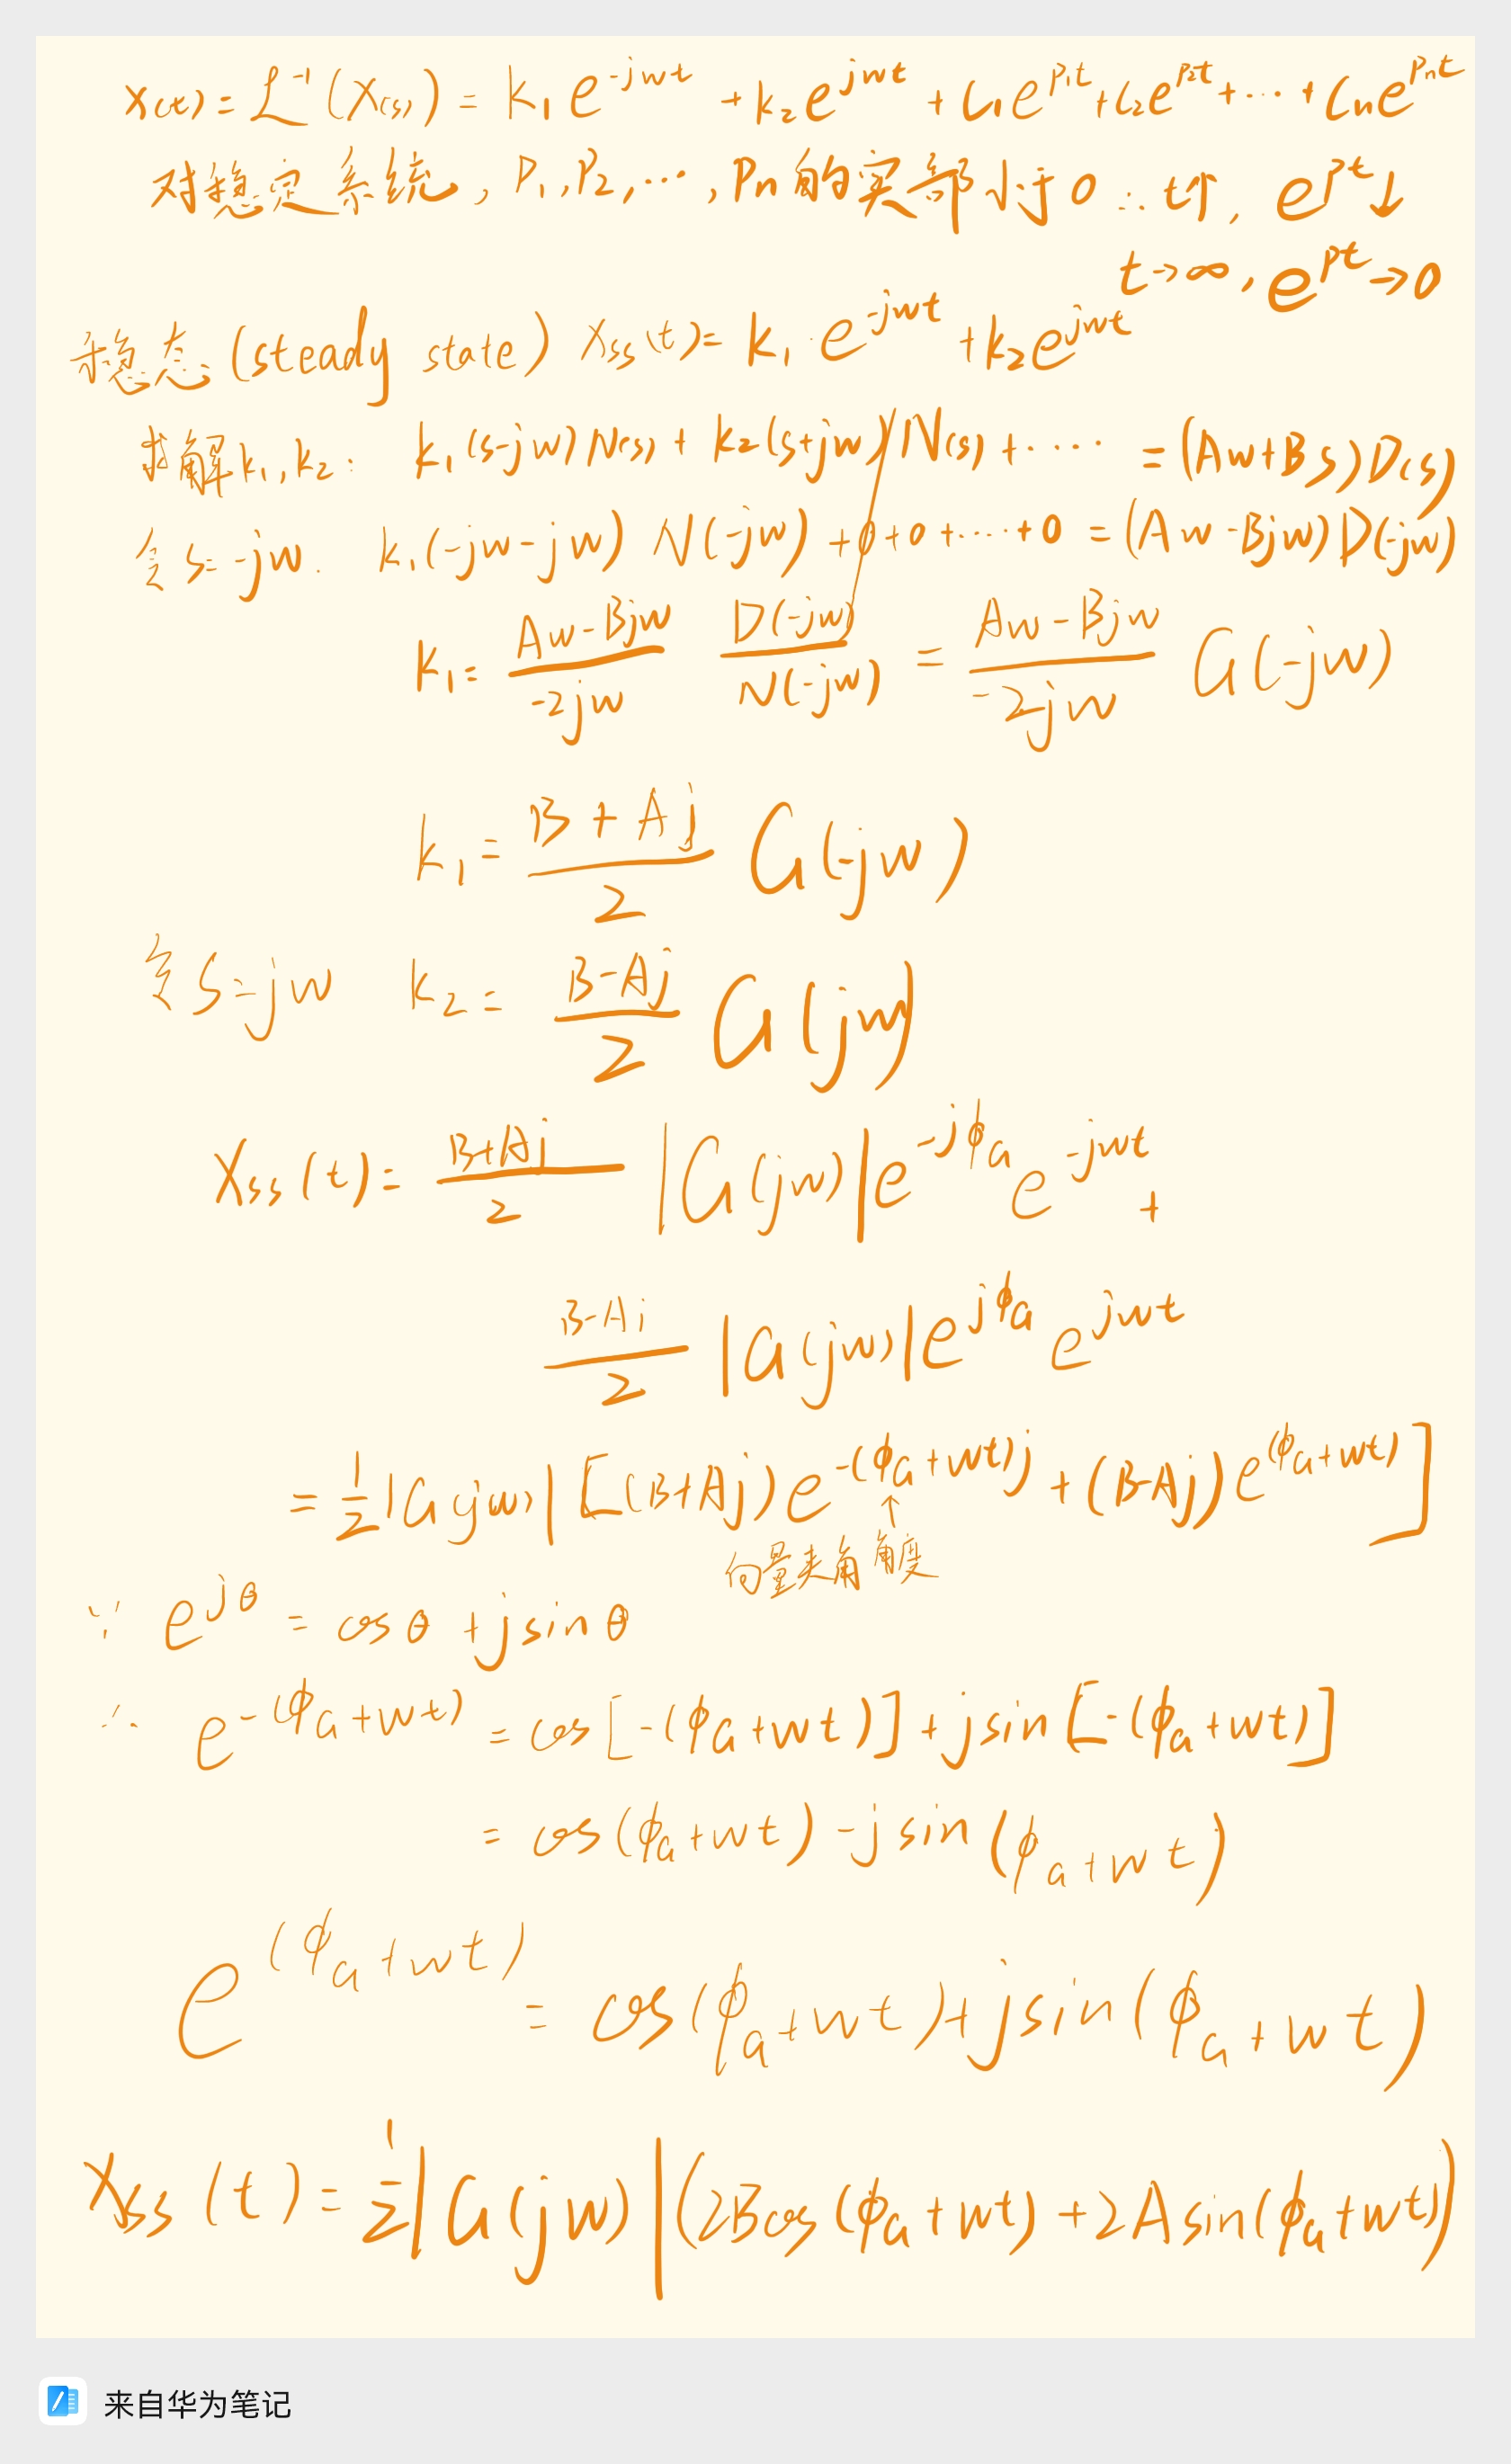 x(t) = ℒ⁻¹(X(s)) = k₁e^{-jwt} + k₂e^{jwt} + C₁e^{P₁t} + C₂e^{P₂t} + ··· + Cₙe^{Pₙt}
对稳定系统, P₁, P₂, ···, Pₙ的实部小于0 ∴ t↑, e^{Pt}↓
t→∞, e^{Pt}→0
稳态: (steady state) Xss(t) = k₁·e^{-jwt} + k₂e^{jwt}
求解k₁,k₂: k₁(s-jw)N(s) + k₂(s+jw)N(s) + ···· = (Aw+Bs)D(s)
令s=-jw. k₁(-jw-jw)N(-jw) + 0 + 0 + ···· + 0 = (Aw-Bjw)D(-jw)
k₁ = \frac{Aw-Bjw}{-2jw} \frac{D(-jw)}{N(-jw)} = \frac{Aw-Bjw}{-2jw} G(-jw)
k₁ = \frac{B+Aj}{2} G(-jw)
令s=jw k₂ = \frac{B-Aj}{2} G(jw)
Xss(t) = \frac{B+Aj}{2} |G(jw)|e^{-jϕ_G} e^{-jwt} +
\frac{B-Aj}{2} |G(jw)|e^{jϕ_G} e^{jwt}
= \frac{1}{2}|G(jw)|[(B+Aj)e^{-(ϕ_G+wt)j} + (B-Aj)e^{(ϕ_G+wt)}]
↑
向量夹角 角度
∵ e^{jθ} = cosθ + jsinθ
∴ e^{-(ϕ_G+wt)} = cos[-(ϕ_G+wt)] + jsin[-(ϕ_G+wt)]
= cos(ϕ_G+wt) - jsin(ϕ_G+wt)
e^{(ϕ_G+wt)} = cos(ϕ_G+wt) + jsin(ϕ_G+wt)
Xss(t) = \frac{1}{2}|G(jw)|(2Bcos(ϕ_G+wt) + 2Asin(ϕ_G+wt))
来自华为笔记